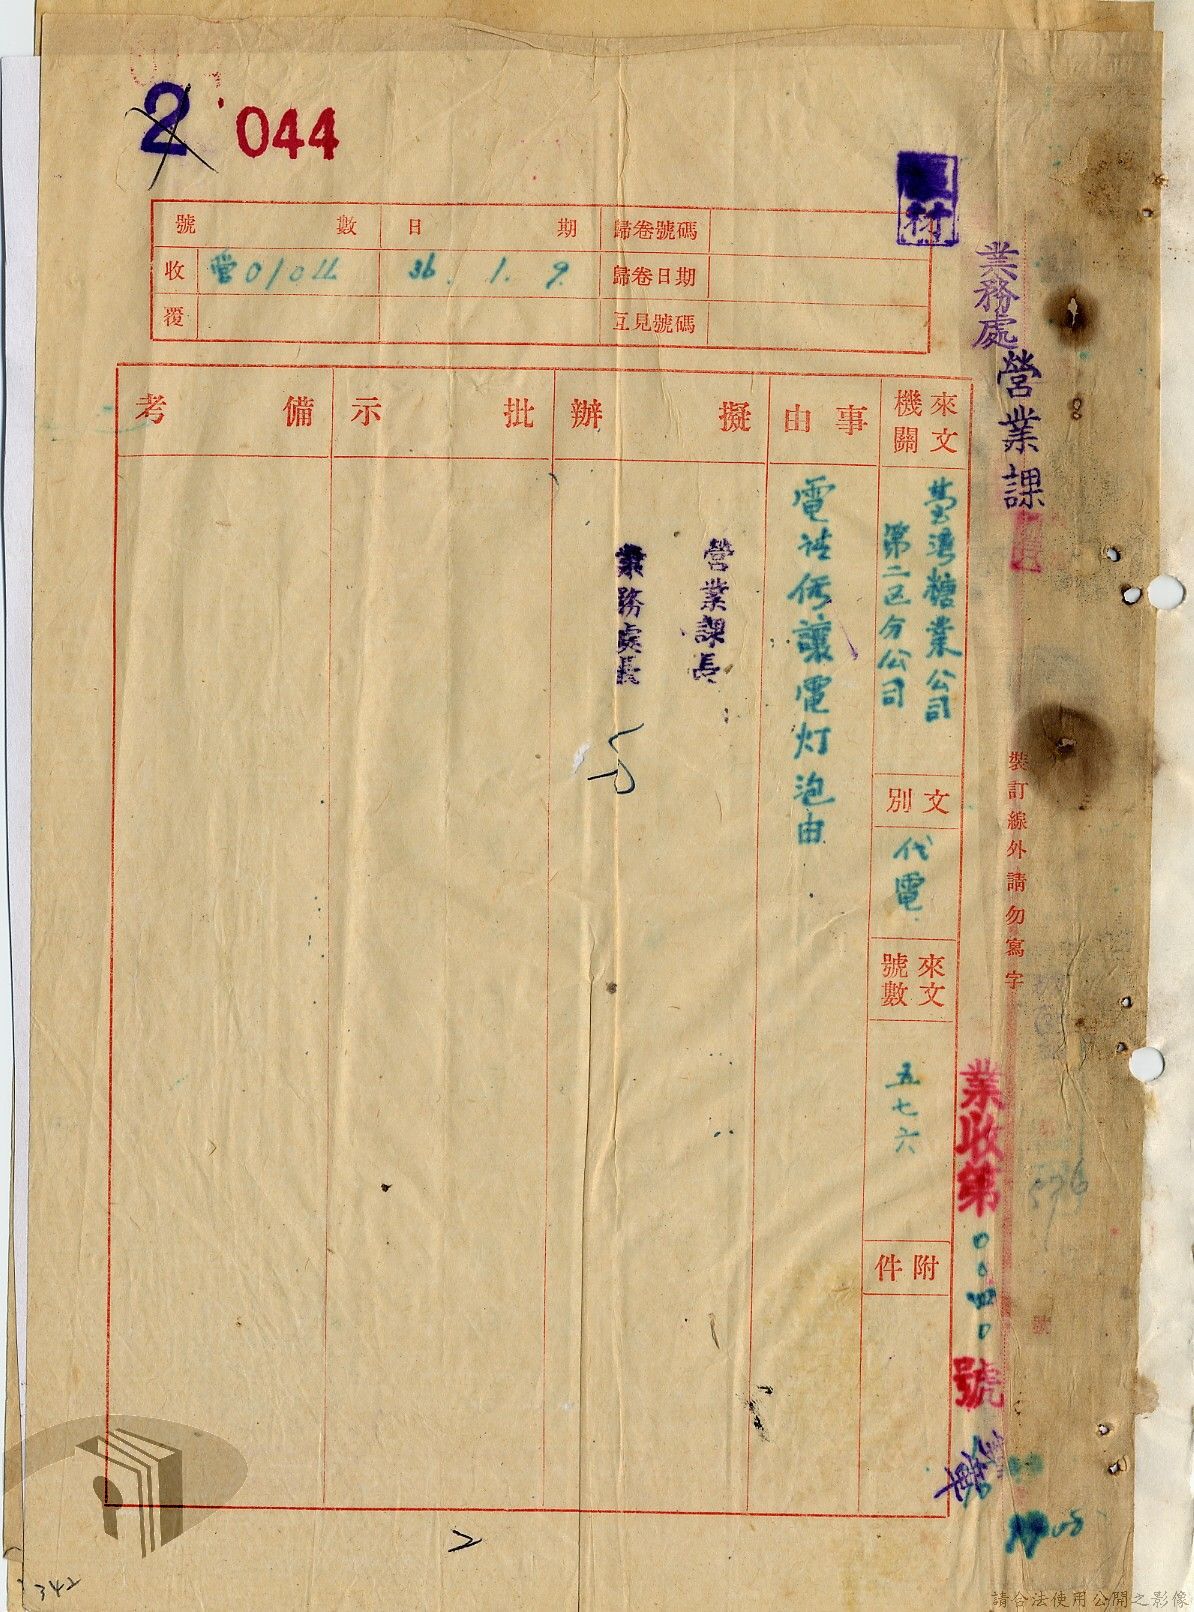 2
044
材
號數
日期
歸卷號碼
收
營0104
36.1.9.
歸卷日期
覆
互見號碼
業務處
營業課
來文機關
臺灣糖業公司
第二区分公司
文別
代電
來文號數
五七六
附件
事由
電請価讓電灯泡由
擬辦
營業課長
業務處長
批示
備考
裝訂線外請勿寫字
業收第
號
576
號
2
342
請合法使用公開之影像